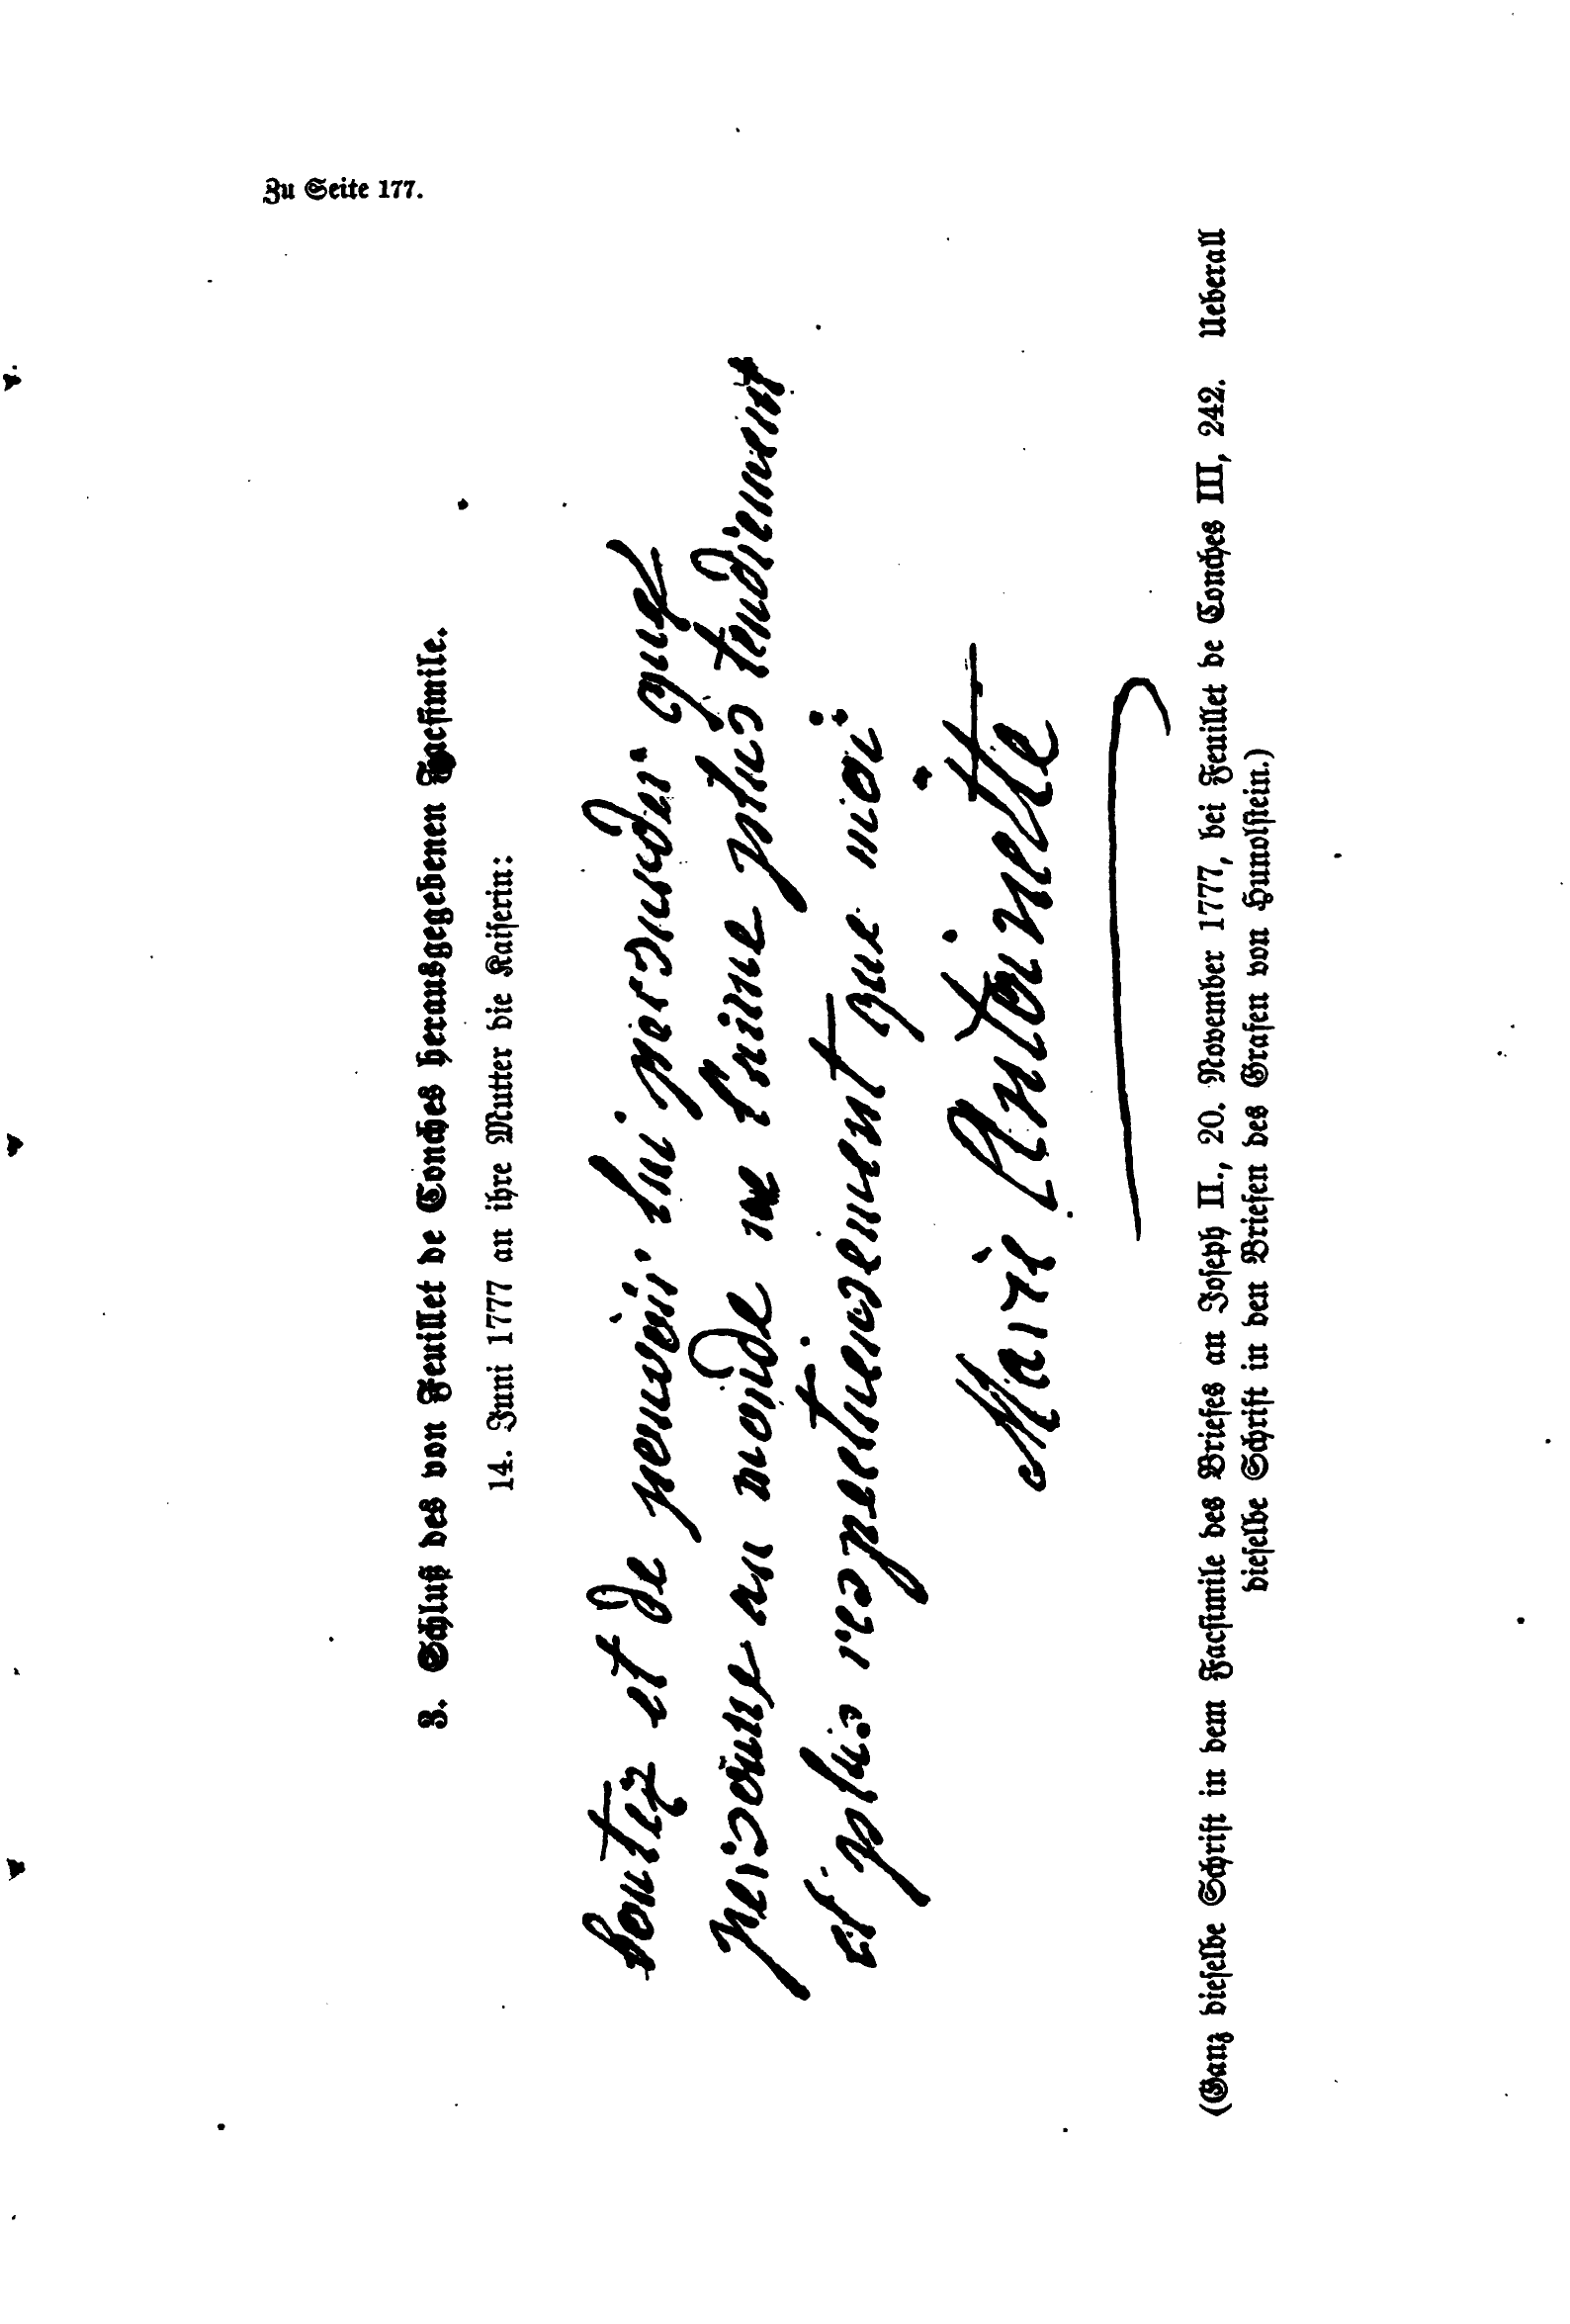 Zu Seite 177.
3. Schluß des von Feuillet de Conches herausgegebenen Facsimile.
14. Juni 1777 an ihre Mutter die Kaiserin:
boutez et de pouvoir lui persuader que
personne au monde ne l'aime plus tendrement
et plus respectueusement que moi
Marie Antoinette
(Ganz dieselbe Schrift in dem Facsimile des Briefes an Joseph II., 20. November 1777, bei Feuillet de Conches III, 242. Ueberall
dieselbe Schrift in den Briefen des Grafen von Hunolstein.)